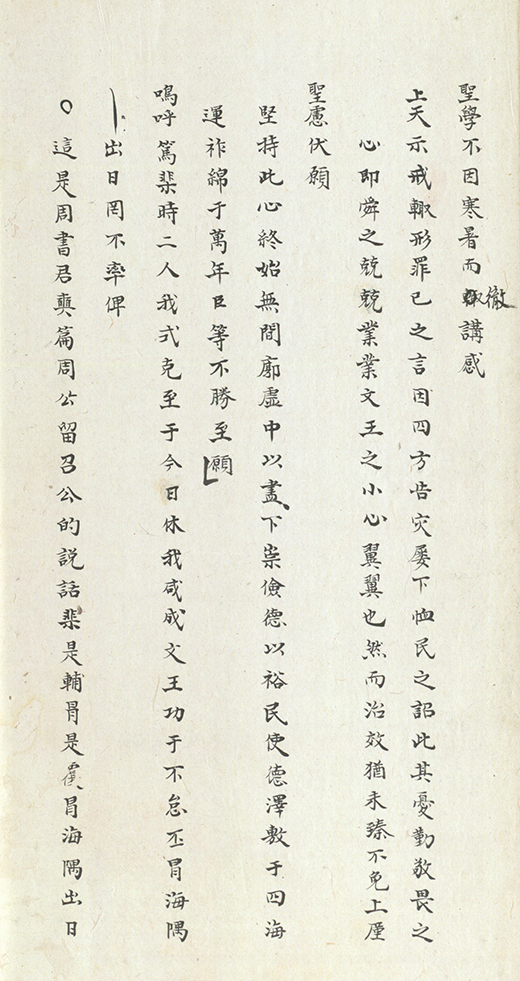 聖學不因寒暑而輟徹講感
上天示戒輙形罪已之言因四方告灾屡下恤民之詔此其憂勤敬畏之
心即舜之兢兢業業文王之小心翼翼也然而治效猶未臻不免上厪
聖慮伏願
堅持此心終始無間廓虛中以盡下崇儉德以裕民使德澤敷于四海
運祚綿于萬年臣等不勝至願
嗚呼篤棐時二人我式克至于今日休我咸成文王功于不怠丕冒海隅
出日罔不率俾
○這是周書君奭篇周公留召公的說話棐是輔冐是覆冐海隅出日